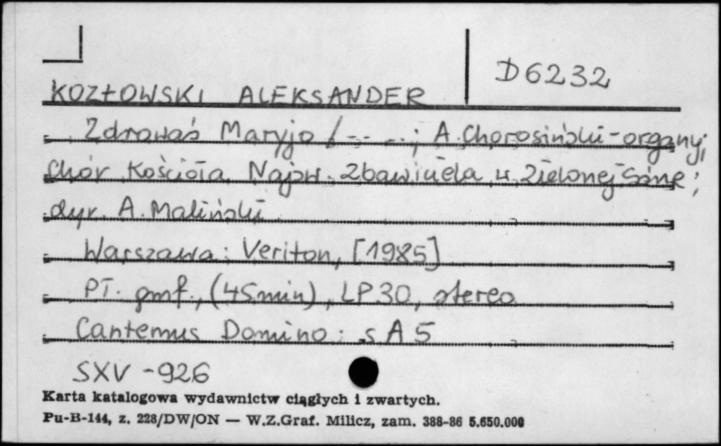 D6232
KOZŁOWSKI ALEKSANDER
Zdrowaś Maryjo / -- --; A. Chorosiński - organy;
Chór Kościoła Najśw. Zbawiciela w Zielonej Górze;
dyr. A. Maliński
Warszawa: Veriton, [1985]
Pł. gmf., (45min), LP30, stereo
Cantemus Domino: s A 5
SXV - 926
Karta katalogowa wydawnictw ciągłych i zwartych.
Pu-B-144, z. 228/DW/ON — W.Z.Graf. Milicz, zam. 388-86 5.650.000